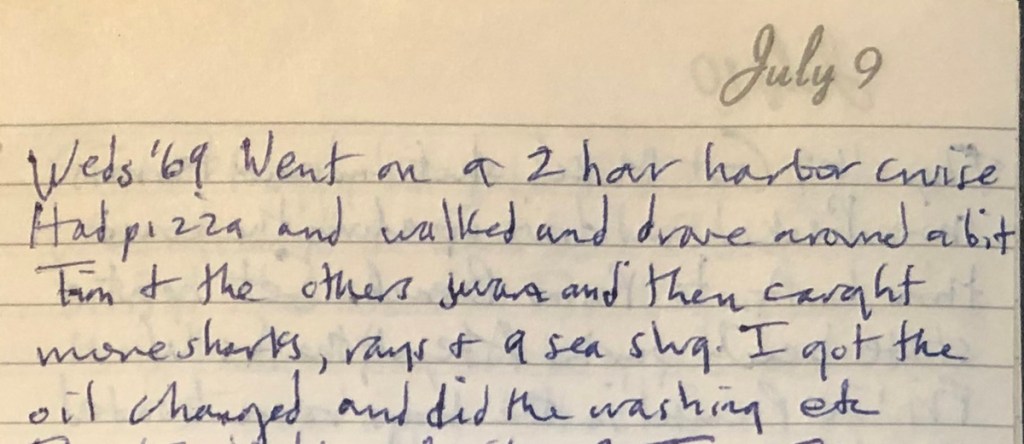 July 9
Weds '69 Went on a 2 hour harbor cruise
Had pizza and walked and drove around a bit
Tim + the others swam and then caught
more sharks, rays + a sea slug. I got the
oil changed and did the washing etc